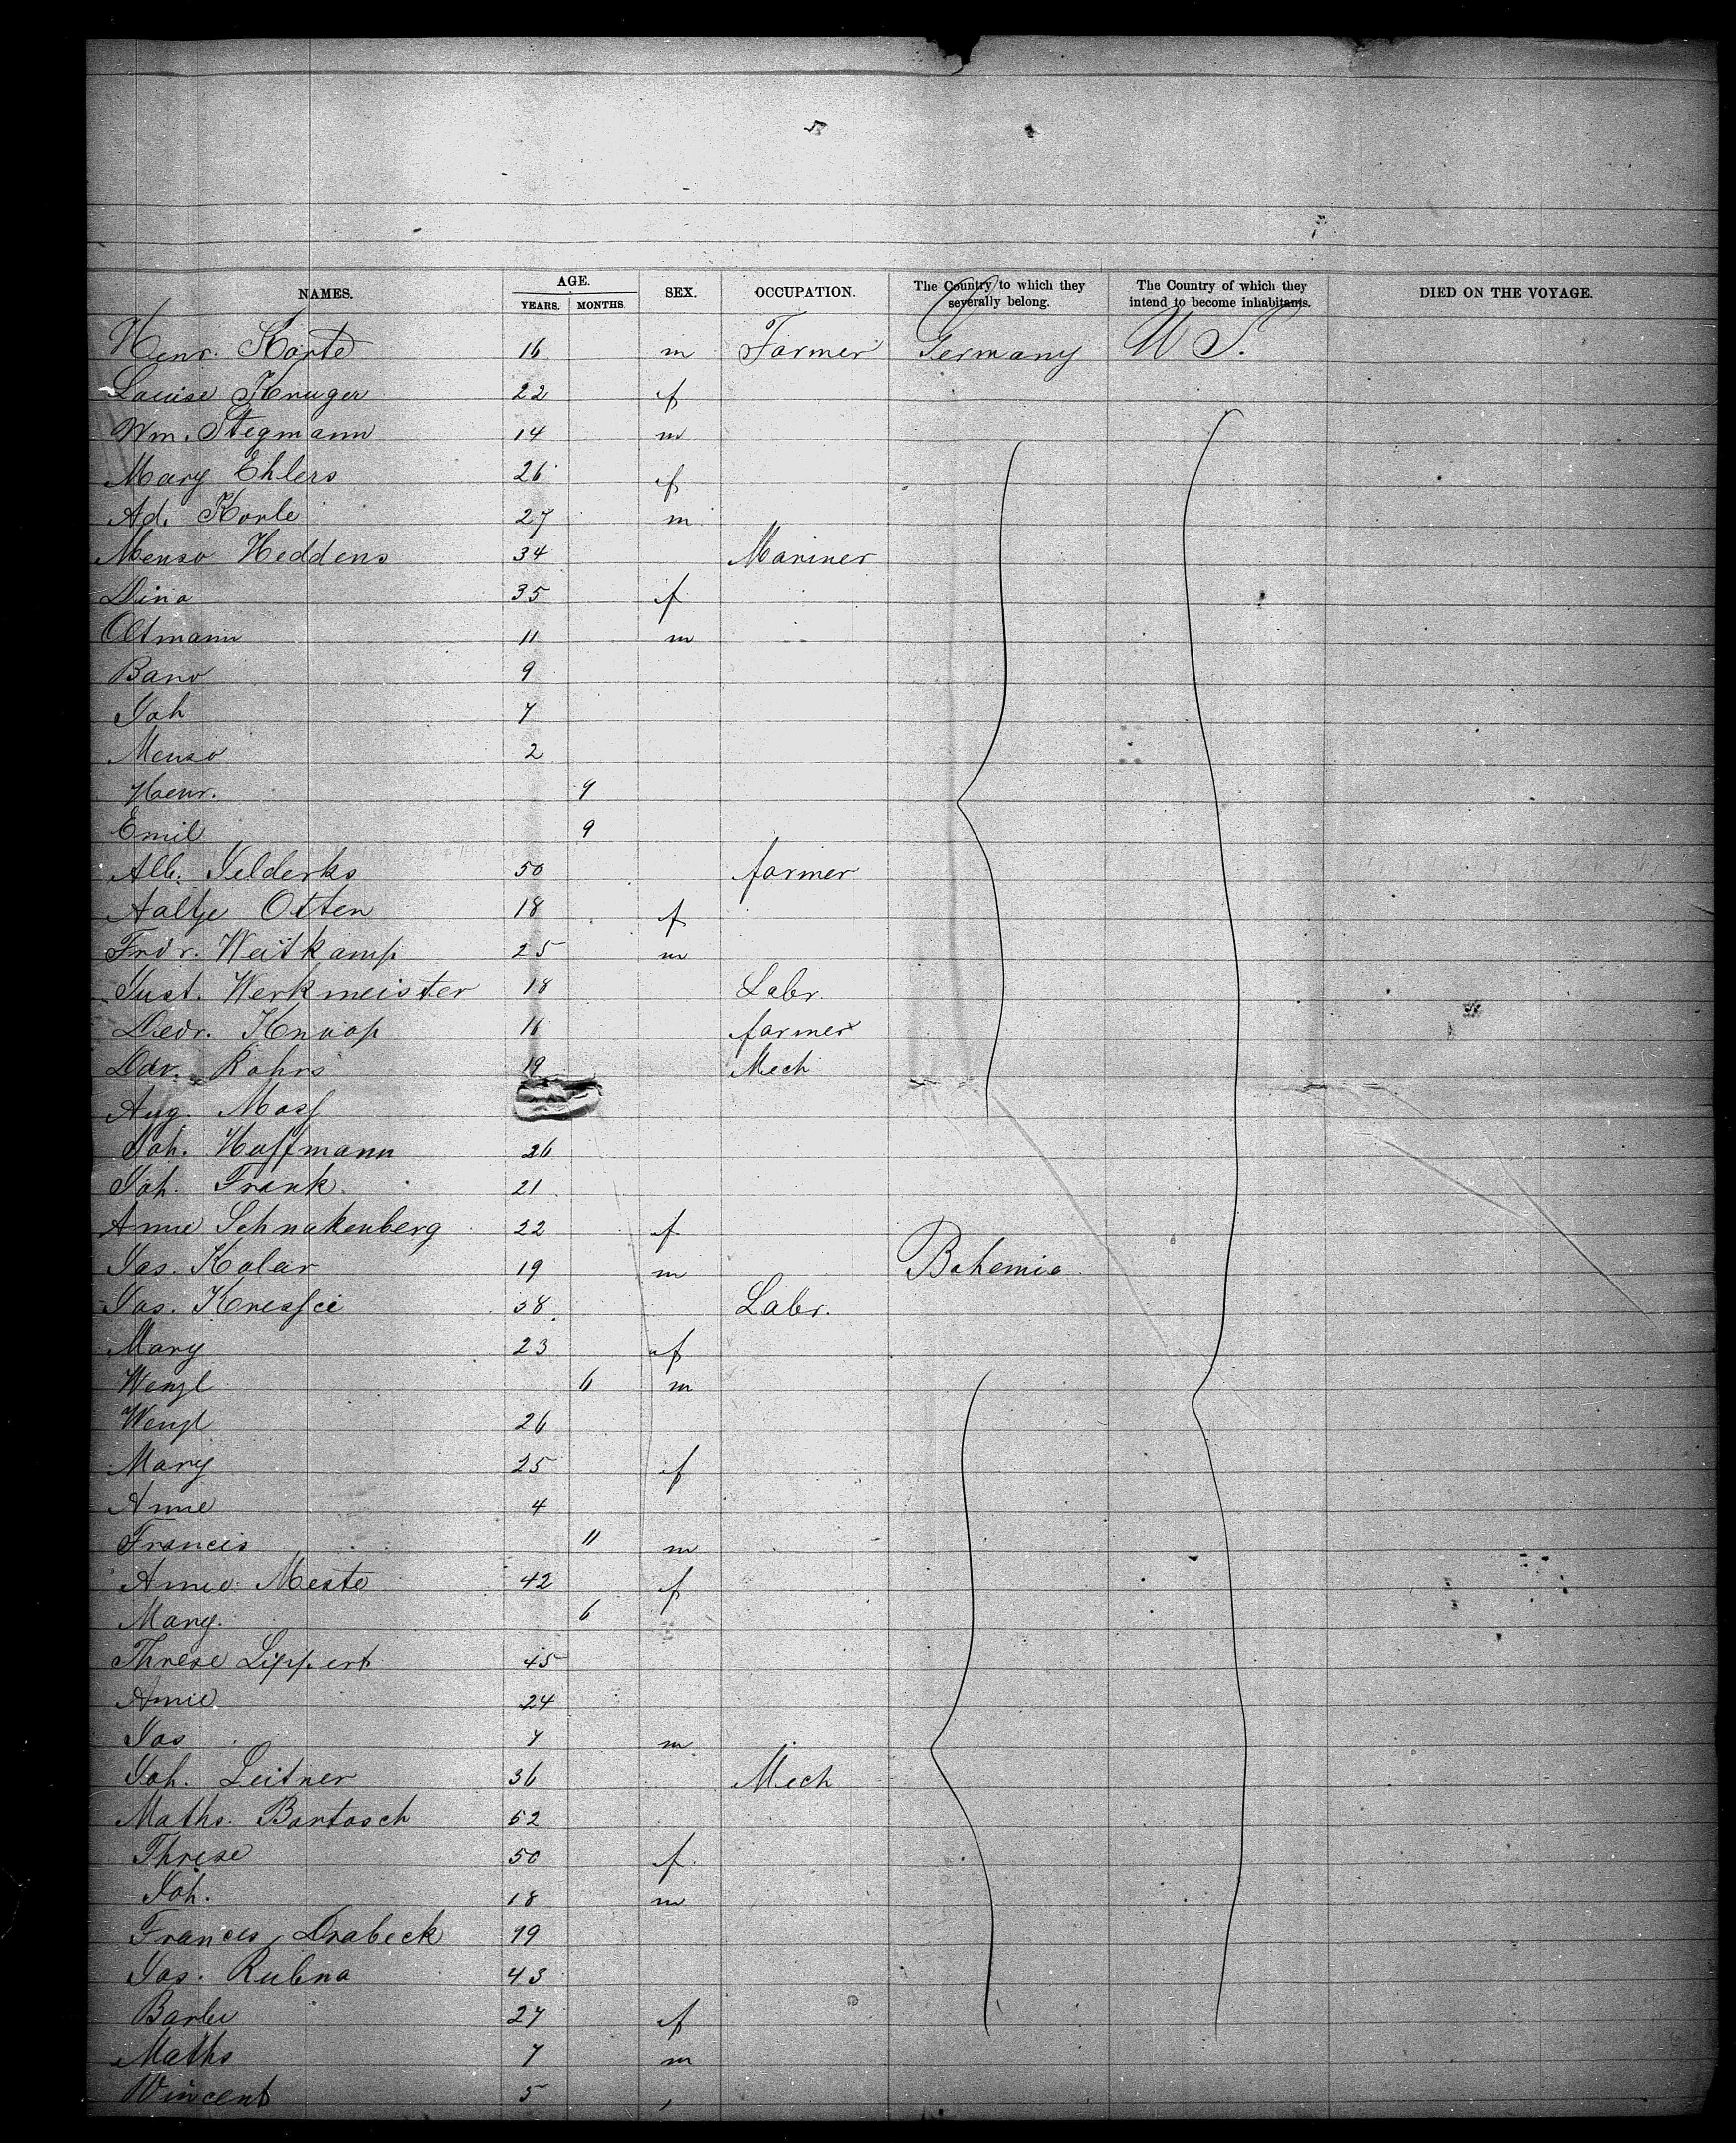 NAMES. AGE. YEARS. MONTHS. SEX. OCCUPATION. The Country to which they severally belong. The Country of which they intend to become inhabitants. DIED ON THE VOYAGE.
Henr. Korte 16 m Farmer Germany U S.
Louise Kruger 22 f
Wm. Stegmann 14 m
Mary Ehlers 26 f
Ad. Korle 27 m
Menso Heddens 34 Mariner
Dina 35 f
Oltmann 11 m
Bano 9
Joh 7
Menso 2
Henr. 9
Emil 9
Alb. Jelderks 50 farmer
Aaltje Otten 18 f
Frdr. Weitkamp 25 m
Gust. Werkmeister 18 Labr.
Diedr. Knoop 16 farmer
Ddr. Rohrs 19 Mech
Aug. Mass
Joh. Hoffmann 26
Joh. Frank 21
Anne Schnakenberg 22 f
Jos. Kolar 19 m Bohemia
Jos. 38 Labr.
Mary 23 f
Wenzl 6 m
Wenzl 26
Mary 25 f
Anne 4
Francis 11 m
Anne Meste 42 f
Mary. 6
Threse Lippert 45
Annie 24
Jos 7 m
Joh. Leitner 36 Mech
Maths. Bartosch 52
Threse 50 f.
Joh. 18 m
Frances Drabeck 19
Jos. Rubna 43
Barbe 27 f
Maths 7 m
Vincent 5 ,